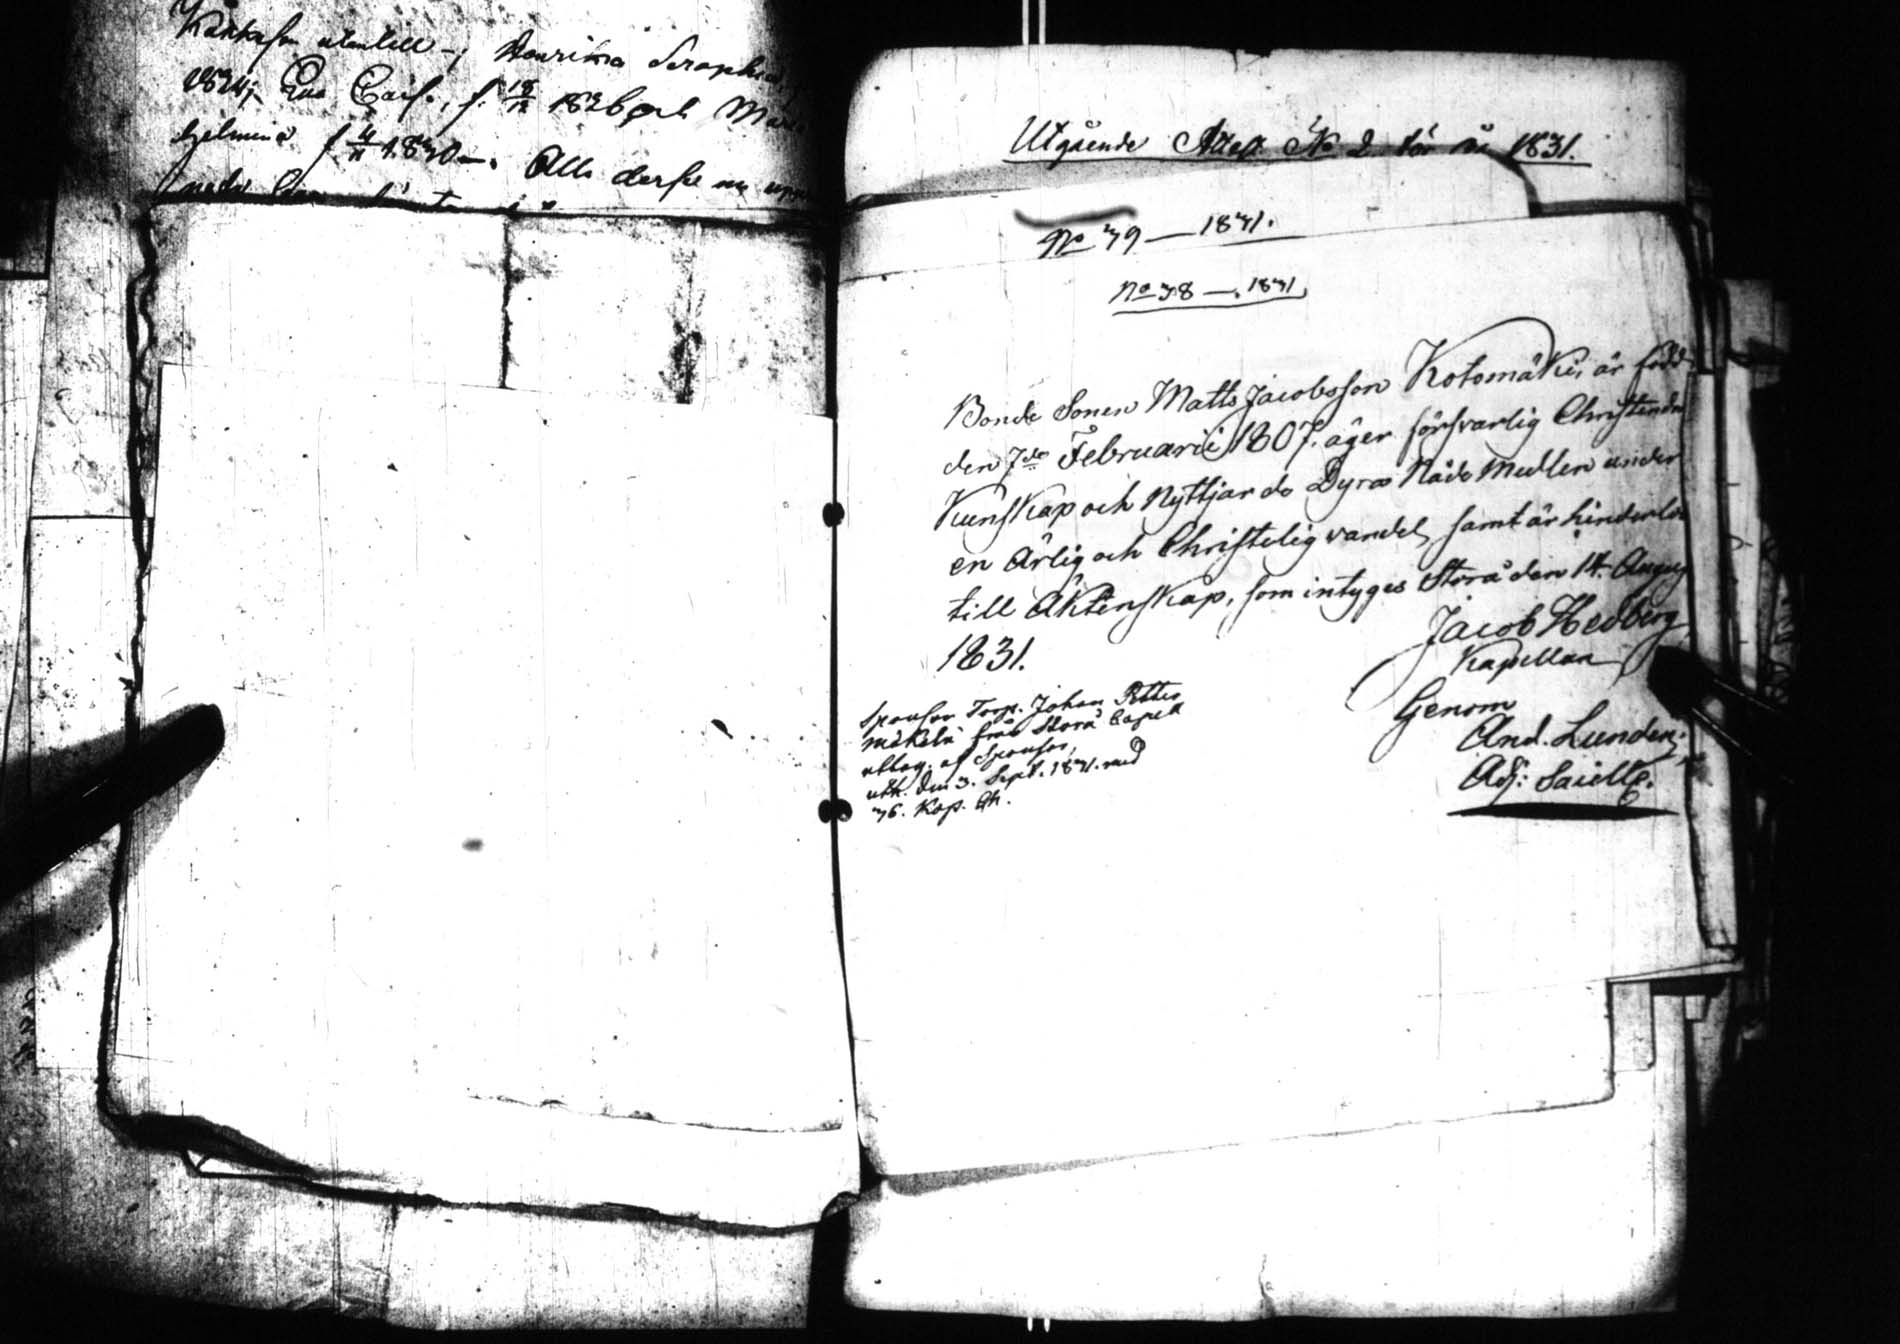 utantill -; Henrika Seraphia
1824; Eva Cais., f. 18/12 1826 och Maria
Hjelmina f 4/11 1830 -. Alla derse nu
Utgående Attest. No 2. för år 1831.
No 39 — 1831.
No 38 —. 1831
Bonde Sonen Matts Jacobsson Kotomäki, är född
den 7de Februarii 1807. äger försvarlig Christendoms
Kunskap och Nyttjar de Dyra Nåde Medlen under
en Ärlig och Christelig vandel, samt är hinderlös
till Äktenskap, som intyges Storå den 14. Augusti
1831.
Jacob Hedberg
Kapellan
Genom
And. Lunden,
Adj: Saielle.
Sponson Torp. Johan Petter
Mäkelä från Storå Capell
uttog. af Sponson,
utk. den 3. Sept. 1831. med
36. Kop. Ch.